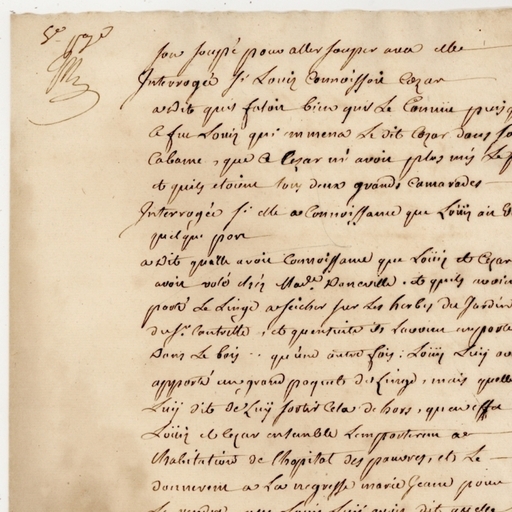 5e page
son soupé pour aller souper avec elle
Interrogée Si Louis Connoissoit Cezar
a dit qu'il faloit bien qu'il le Connue puis q
Ce fut Louis qui mmena Le dit Cezar dans sa
Cabane, que Cezar n'i avoit plus mis le p
et quils etoient tous deux grands Camarades
Interrogée Si elle a Connoissance que Louis ait
quelque part
a dit quelle avoit Connoissance que Louis et Cezar
avoit volé chéz Made. et quils avoie
porté Le Linge a seicher sur Les herbes du Jardin
du Sr. , et quensuite ils Lavoient emporté
Dans Le bois .. qu'une autre fois: Louis Luy av
apporté un grand paquet de Linge, mais quelle
Luy dit de Luy sortir Cela dehors, quen effet
Louis et Cezar ensemble Lemporterent a
Lhabitation de Lhopital des pauvres, et Le
donnerent a La negresse marie Jeanne pour
Le vendre, que Louis Luy avoit dit